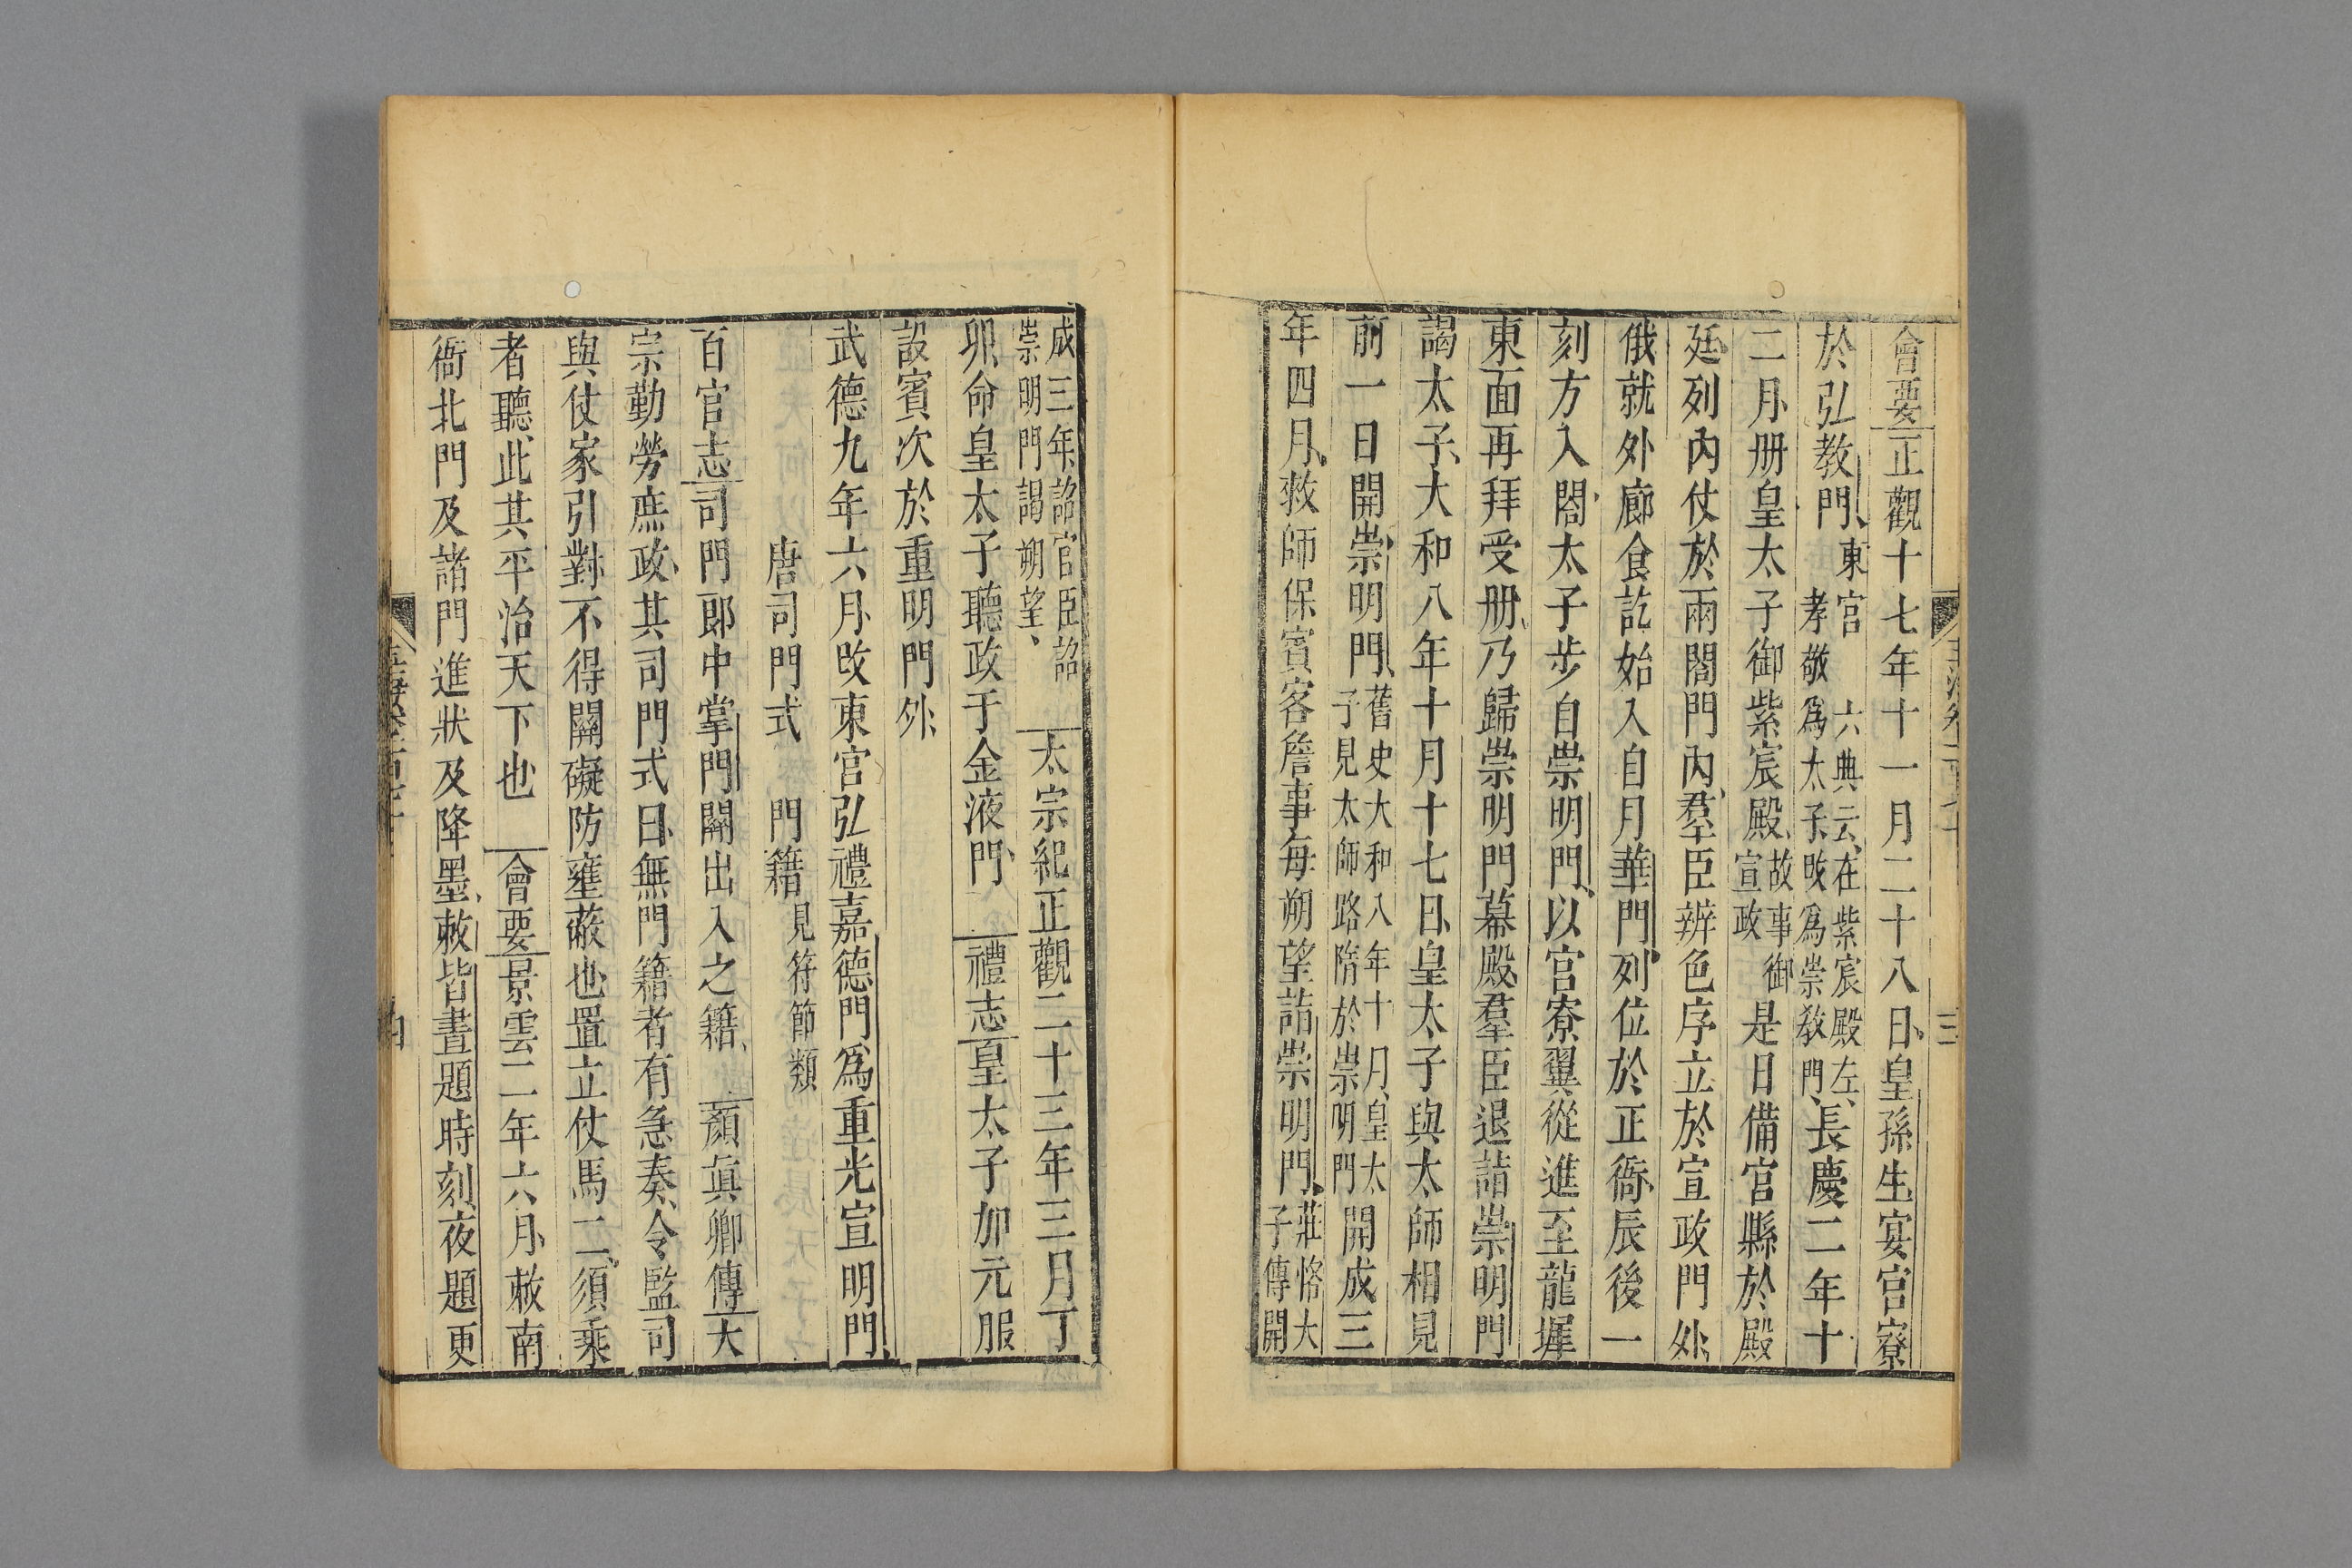 會要正觀十七年十一月二十八日皇孫生宴宮寮
於弘教門東宮六典云在紫宸殿左孝敬爲太子改爲崇教門長慶二年十
二月册皇太子御紫宸殿故事御宣政是日備宮縣於殿
廷列內仗於兩閤門內羣臣辨色序立於宣政門外
俄就外廊食訖始入自月華門列位於正衙辰後一
刻方入閤太子步自崇明門以宮寮翼從進至龍墀
東面再拜受册乃歸崇明門幕殿羣臣退詣崇明門
謁太子大和八年十月十七日皇太子與太師相見
前一日開崇明門舊史大和八年十月皇太子見太師路隋於崇明門開成三
年四月敕師保賓客詹事每朔望詣崇明門莊恪大子傳開
成三年詔宮臣詔崇明門謁朔望太宗紀正觀二十三年三月丁
卯命皇太子聽政于金液門禮志皇太子加元服
設賓次於重明門外
武德九年六月改東宮弘禮嘉德門爲重光宣明門
唐司門式 門籍見符節類
百官志司門郎中掌門關出入之籍顏眞卿傳大
宗勤勞庶政其司門式曰無門籍者有急奏令監司
與仗家引對不得關礙防壅蔽也置立仗馬二須乘
者聽此其平治天下也會要景雲二年六月敕南
衙北門及諸門進狀及降墨敕皆晝題時刻夜題更